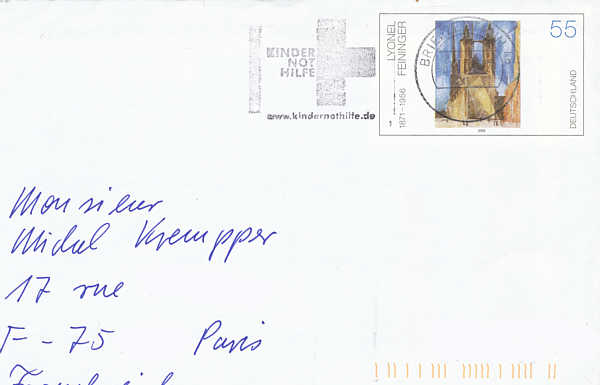 KINDER
NOT
HILFE
www.kindernothilfe.de
LYONEL
FEININGER
1871-1956
55
DEUTSCHLAND
Monsieur
Michel Krempper
17 rue
F-75 Paris
Frankreich